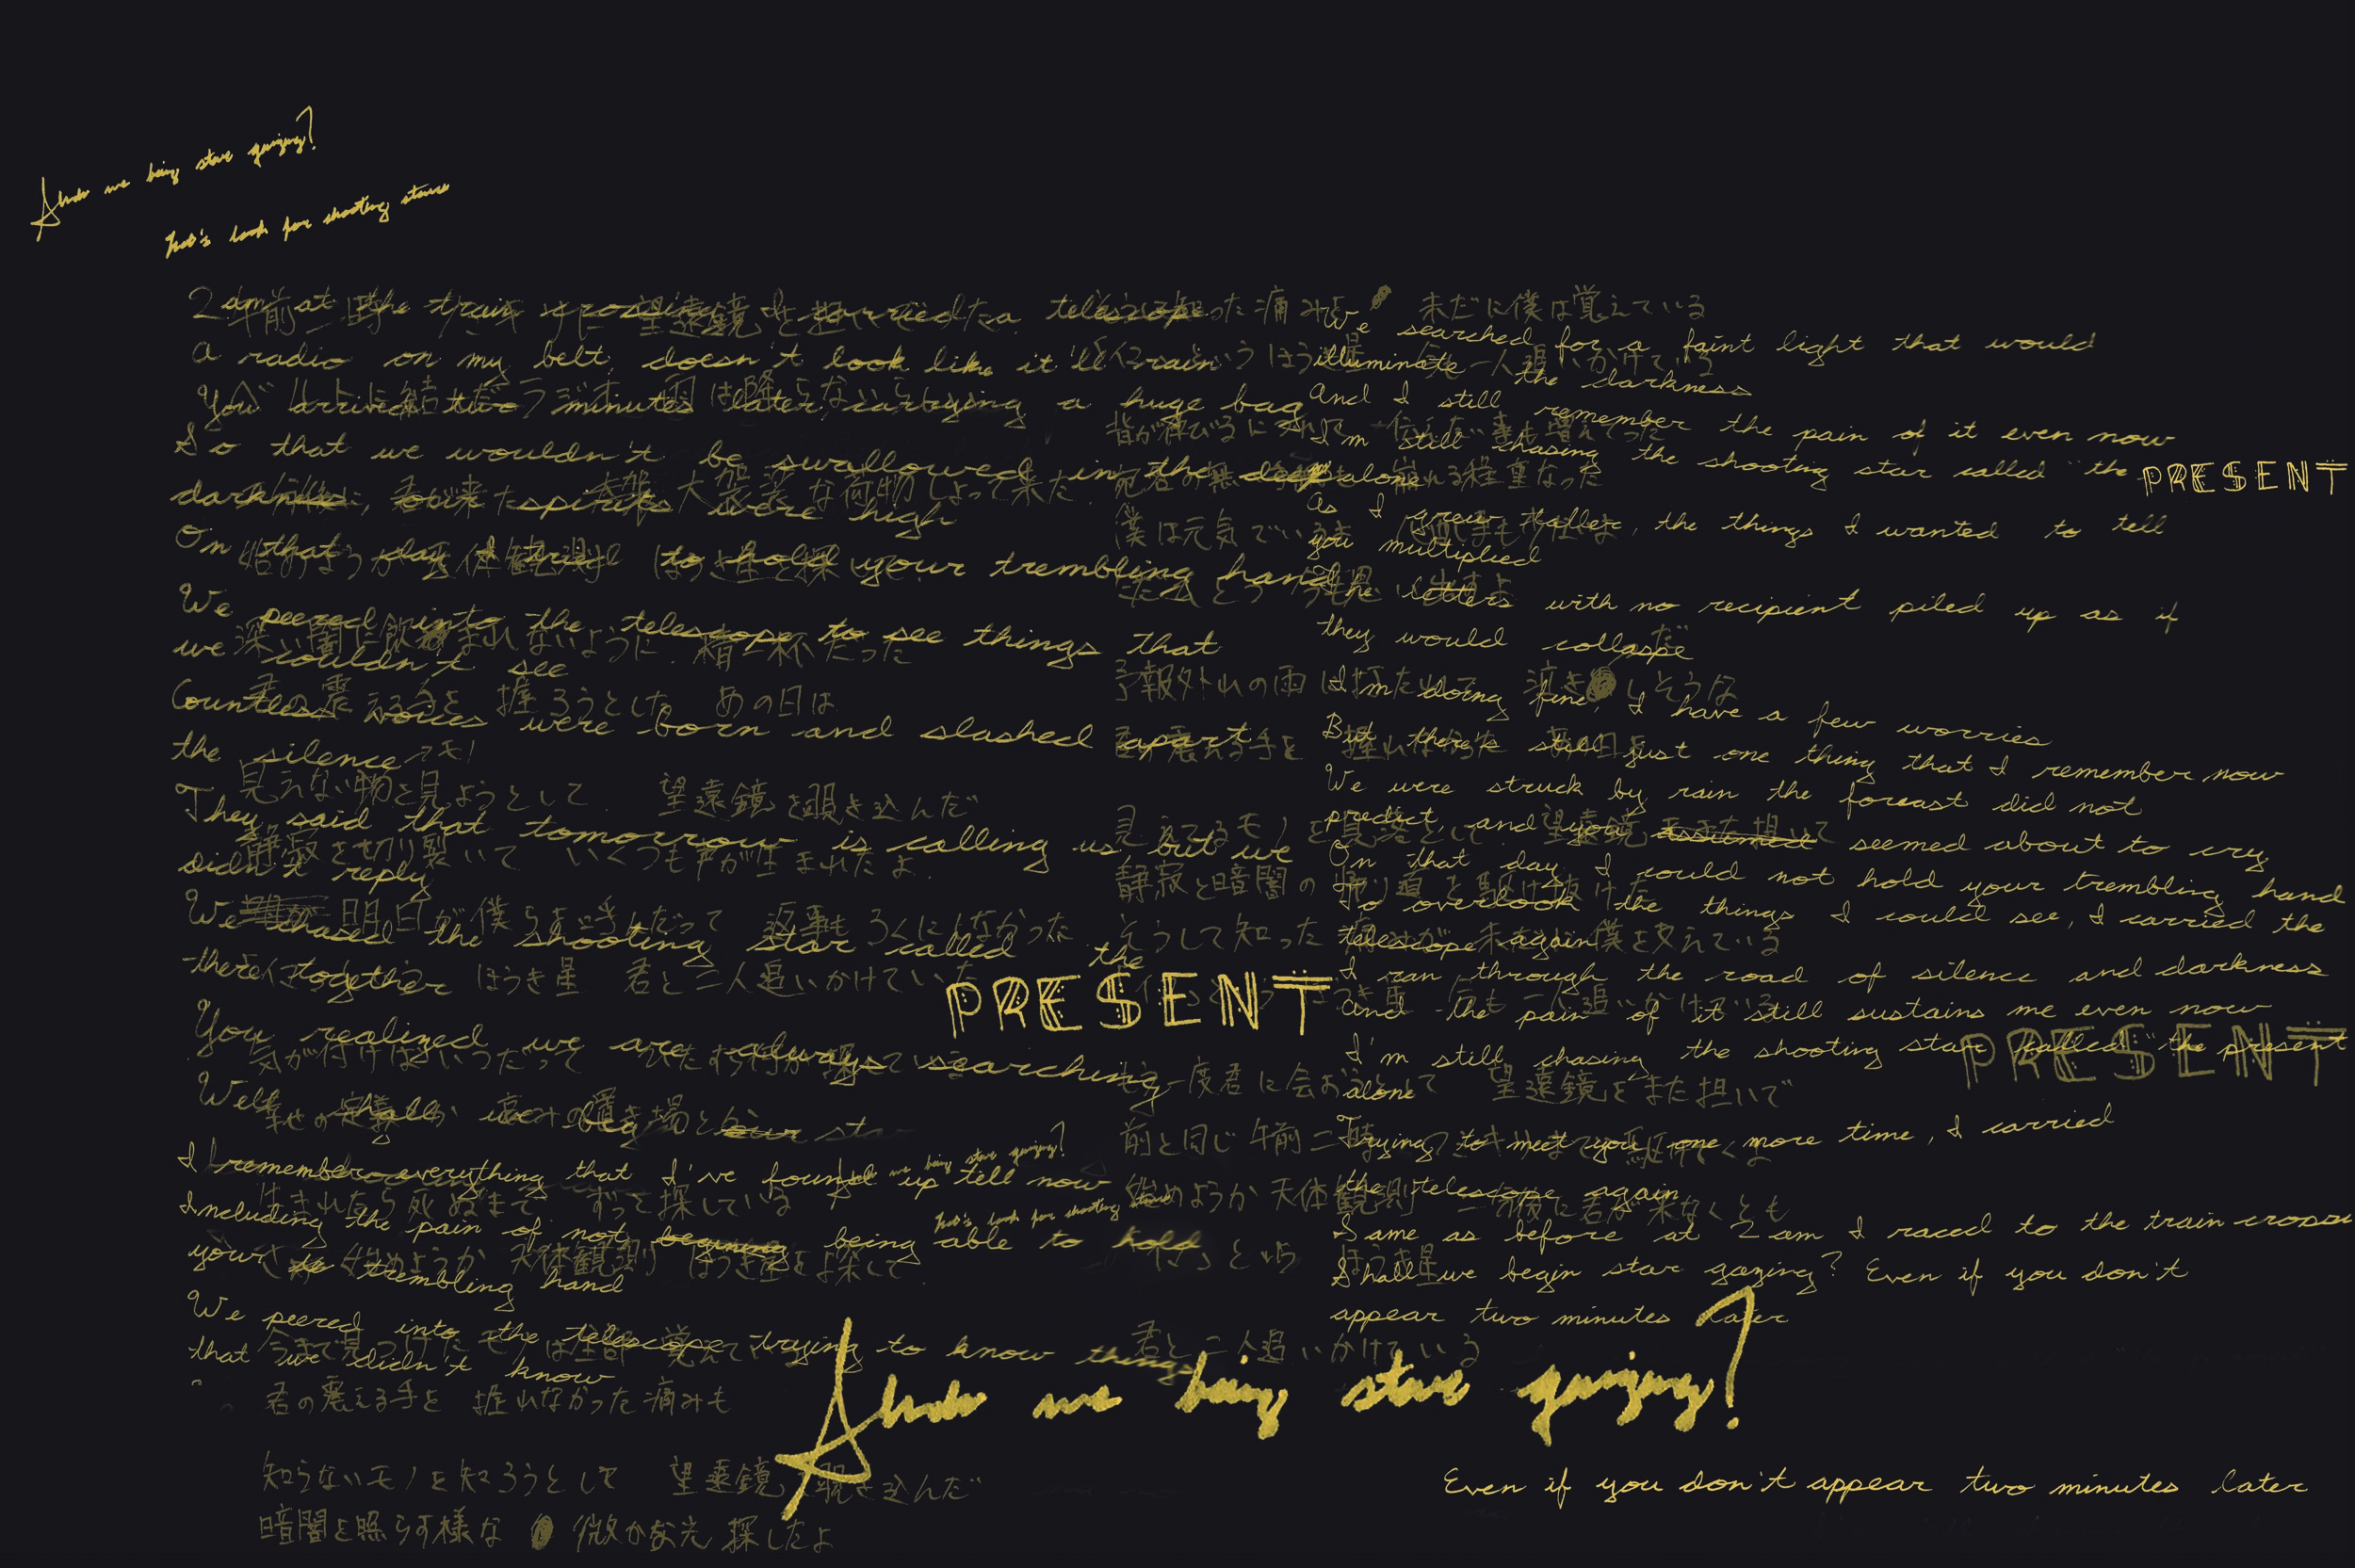 Shall we begin star gazing?
Let's look for shooting stars
2 am at the train crossing I carried a telescope
a radio on my belt, doesn't look like it'll rain
You arrived two minutes later, carrying a huge bag
So that we wouldn't be swallowed in the deep
darkness, spirits were high
On that day I tried to hold your trembling hand
We peered into the telescope to see things that
we couldn't see
Countless voices were born and slashed apart
the silence
They said that tomorrow is calling us but we
didn't reply
We chased the shooting star called the
PRESENT
there, together
You realized we are always searching
Well shall we beg our sta
I remember everything that I've found up tell now
Including the pain of not being able to hold
your trembling hand
We peered into the telescope trying to know things
that we didn't know
We searched for a faint light that would
illuminate the darkness
And I still remember the pain of it even now
I'm still chasing the shooting star called "the PRESENT
alone
As I grew taller, the things I wanted to tell
you multiplied
The letters with no recipient piled up as if
they would collaspe
I'm doing fine, I have a few worries
But there's still just one thing that I remember now
We were struck by rain the forcast did not
predict, and you assumed seemed about to cry
On that day, I could not hold your trembling hand
To overlook the things I could see, I carried the
telescope again
I ran through the road of silence and darkness
and the pain of it still sustains me even now
I'm still chasing the shooting star called "the present
PRESENT
alone
Trying to meet you one more time, I carried
the telescope again
Same as before at 2 am I raced to the train crossi
Shall we begin star gazing? Even if you don't
appear two minutes later
Shall we begin star gazing?
Even if you don't appear two minutes later
午前二時 望遠鏡を担いで
ベルトに結んだラジオ 雨は降らないらし
君が来た 大袈裟な荷物しょって来た
始めようか天体観測 ほうき星を探して
深い闇に飲まれないように 精一杯だった
君の震える手を 握ろうとした あの日は
見えない物を見ようとして 望遠鏡を覗き込んだ
静寂を切り裂いて いくつも声が生まれたよ
明日が僕らを呼んだって 返事もろくにしなかった
ほうき星 君と二人追いかけていた
気が付けばいつだって ひたすら何か探して
幸せの定義とか 痛みの置き場とか
生まれたら死ぬまで ずっと探している
さぁ 始めようか 天体観測 ほうき星を探して
今まで見つけたモノは全部 覚えてい
君の震える手を 握れなかった痛みも
知らないモノを知ろうとして 望遠鏡 覗き込んだ
暗闇を照らす様な 微かな光 探したよ
った痛みを 未だに僕は覚えている
いうほうき星 一人追いかけている
背が伸びるにつれて 伝えたい事も増えてった
宛名の無い 崩れる程重なった
僕は元気でいる
予報外れの雨に打たれて 泣きだしそうな
君の震える手を 握れなかった あの日を
見えてるモノを見落として 望遠鏡をまた担いで
静寂と暗闇の帰り道を駆け抜けた
そうして知った 未だに僕を支えている
今も一人追いかけている
もう一度君に会おうとして 望遠鏡をまた担いで
前と同じ 午前二時 駆けてくよ
始めようか 天体観測 二分後に君が来なくとも
ほうき星
君と二人追いかけている